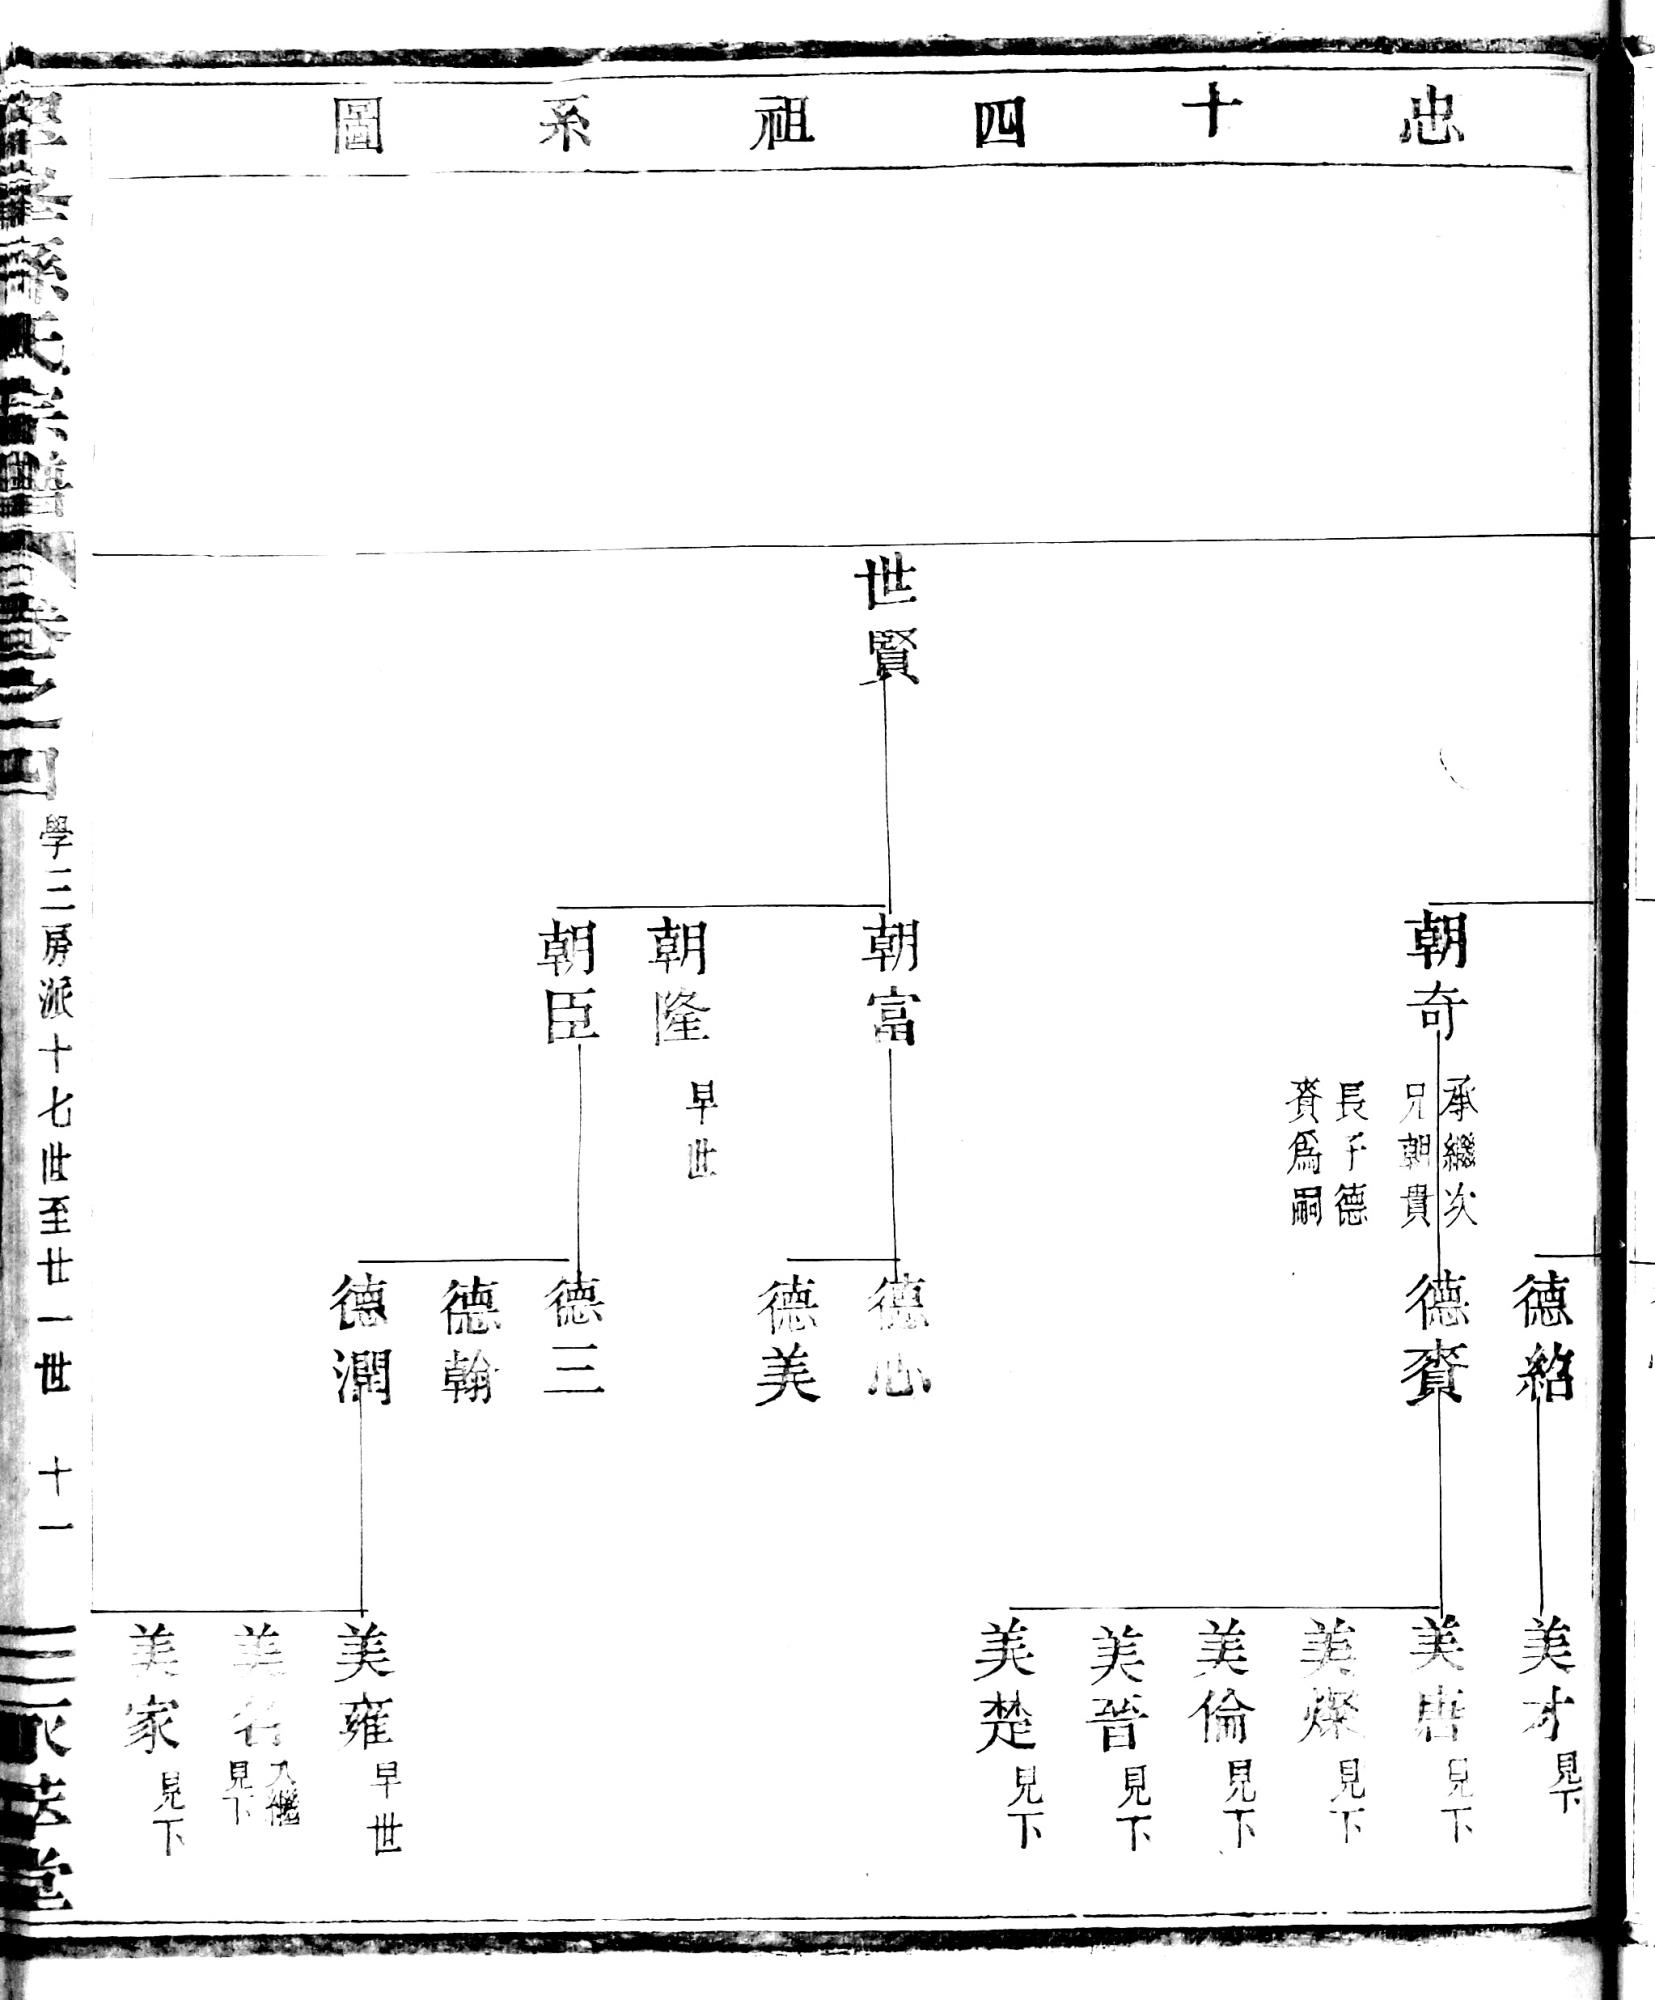 忠十四祖系圖
世賢
朝奇
承繼次
兄朝貴
長子德
賚爲嗣
朝富
朝隆
早世
朝臣
德紹
德賚
德心
德美
德三
德翰
德潤
美才 見下
美唐 見下
美燦 見下
美倫 見下
美晉 見下
美楚 見下
美雍 早世
美名 入繼 見下
美家 見下
孫氏宗譜 卷之四
學三房派十七世至廿一世 十一
堂